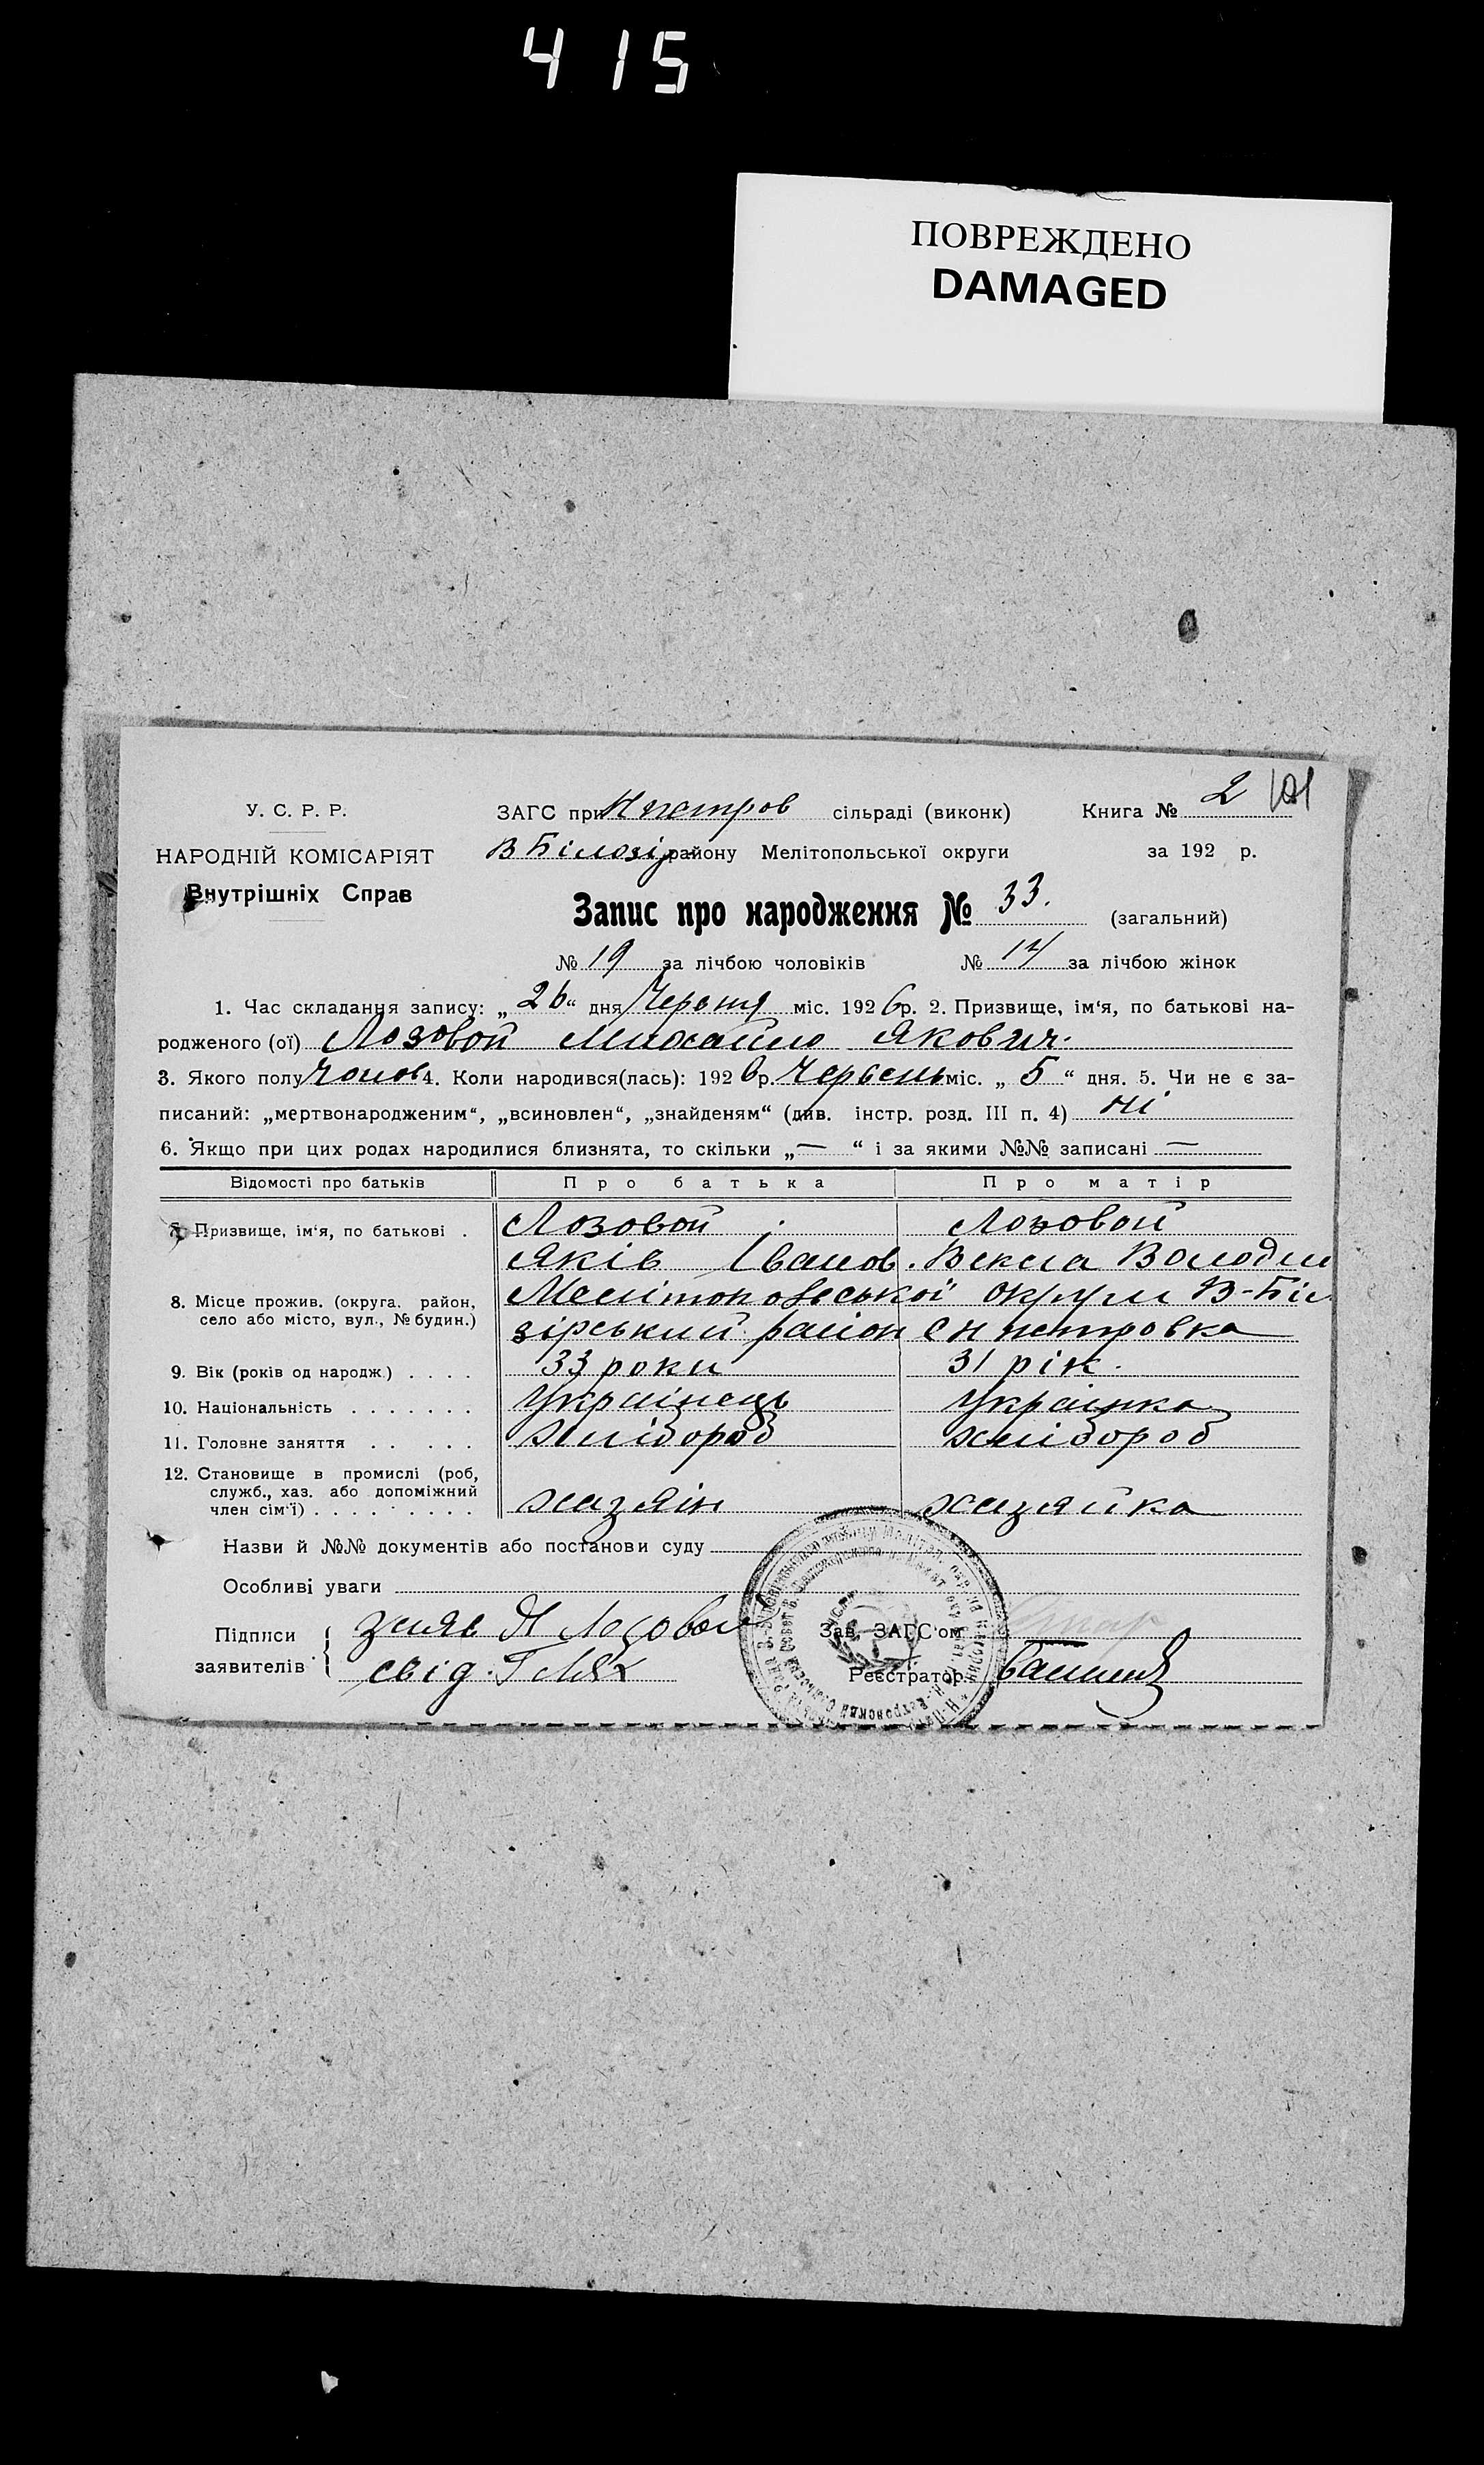 415
ПОВРЕЖДЕНО
DAMAGED
У. С. Р. Р. ЗАГС при Нпетров сільраді (виконк) Книга № 2 101
НАРОДНІЙ КОМІСАРІЯТ В Білозір району Мелітопольської округи за 192 р.
Внутрішніх Справ
Запис про народження № 33. (загальний)
№ 19 за лічбою чоловіків № 14 за лічбою жінок
1. Час складання запису: „26“ дня Червня міс. 1926р. 2. Призвище, ім‘я, по батькові на-
родженого (ої) Лозовой Михайло Якович.
3. Якого полу Чолов 4. Коли народився(лась): 1926р. Червень міс. „5“ дня. 5. Чи не є за-
писаний: „мертвонародженим“, „всиновлен“, „знайденям“ (див. інстр. розд. III п. 4) ні
6. Якщо при цих родах народилися близнята, то скільки „—“ і за якими №№ записані —
Відомості про батьків Про батька Про матір
7. Призвище, ім‘я, по батькові . Лозовой Лозовой
Яків Іванов. Векла Володим
8. Місце прожив. (округа. район, Мелітопольської округи В-Біл
село або місто, вул., № будин.) зірський район с Н петровка
9. Вік (років од народж.) . . . . 33 роки 31 рік.
10. Національність . . . . . . . Українець Українка
11. Головне заняття . . . . . хлібороб хлібороб
12. Становище в промислі (роб,
служб., хаз. або допоміжний
член сім‘ї) . . . . . . . . хазяін хазяйка
Назви й №№ документів або постанови суду
Особливі уваги
Підписи заяв Я Лозовой Зав. ЗАГС‘ом
заявителів свід. Г Лях Реєстратор